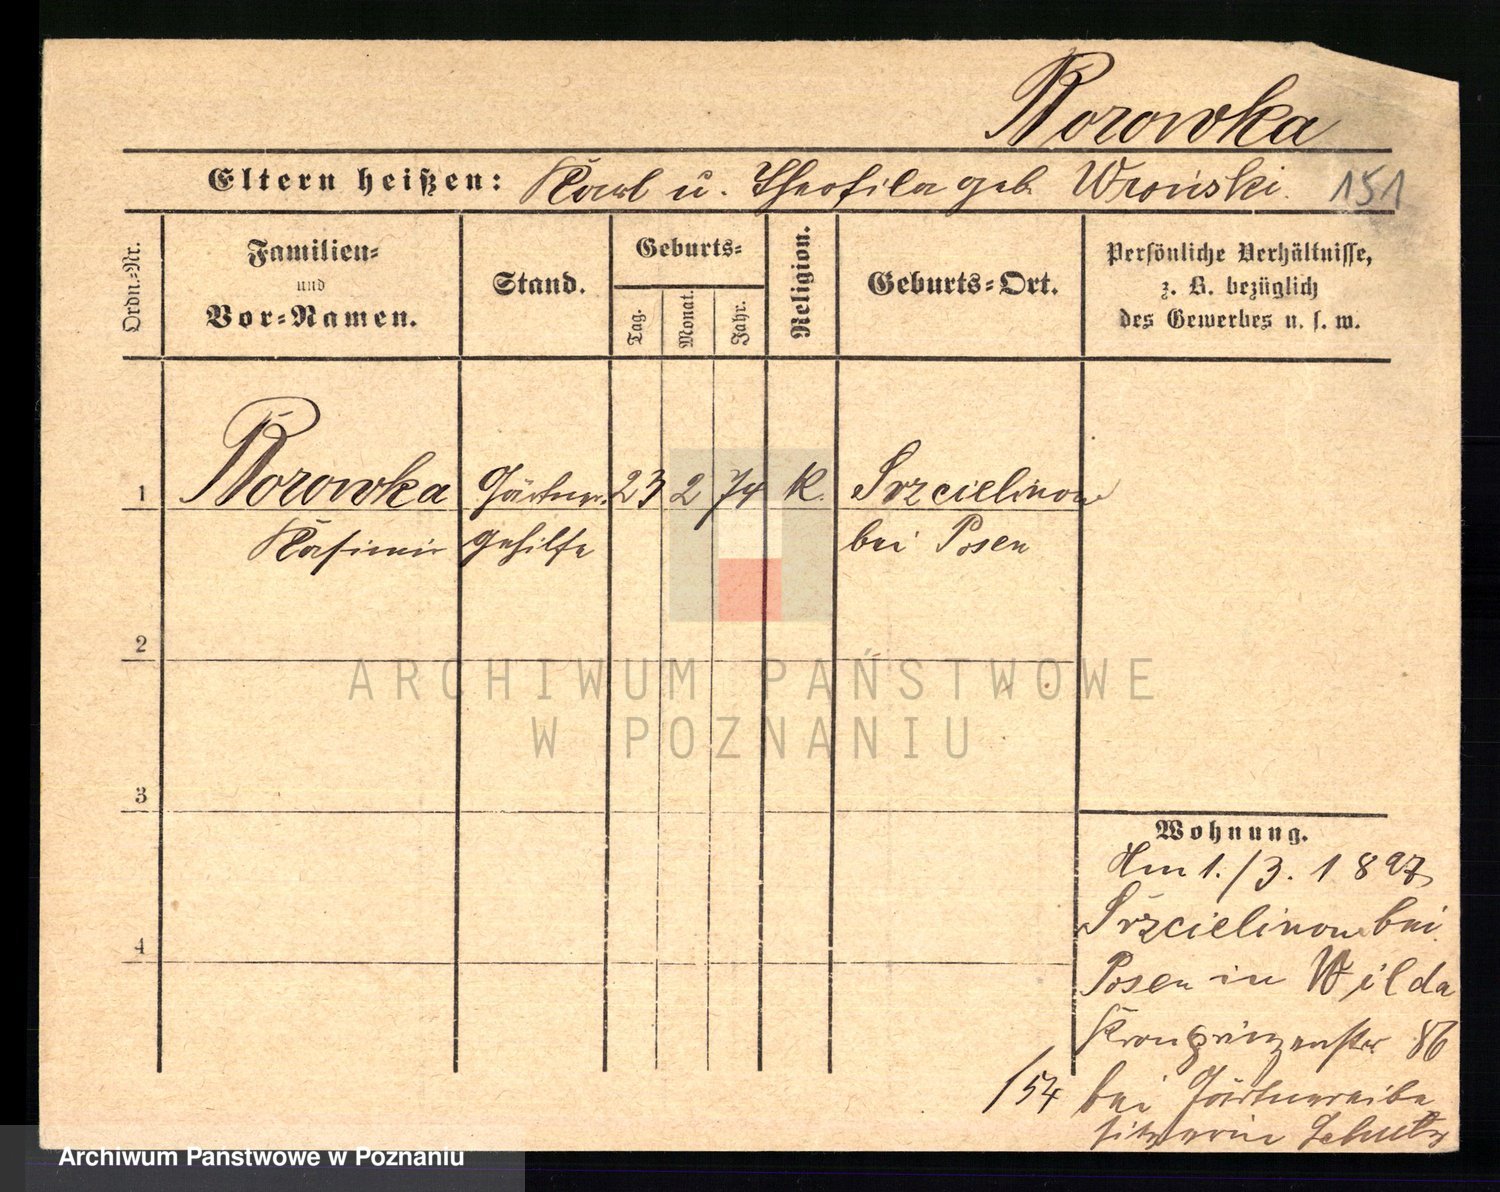 Borowka
Eltern heißen: Karl u. Theofila geb. Wroński. 151
Ordn.-Nr.
Familien-
und
Vor-Namen.
Stand.
Geburts-
Tag. Monat. Jahr.
Religion.
Geburts-Ort.
Persönliche Verhältnisse,
z. B. bezüglich
des Gewerbes u. s. w.
1 Borowka Gärtner. 23 2 74 K. Srzcielinow
Kasimir gehilfe bei Posen
2
ARCHIWUM PAŃSTWOWE
W POZNANIU
3
Wohnung.
Am 1./3. 1897
Srzcielinow bei
4
Posen in Wilda
Kronprinzenstr 86
/54 bei Gärtnereibe
sitzerin Schultz
Archiwum Państwowe w Poznaniu